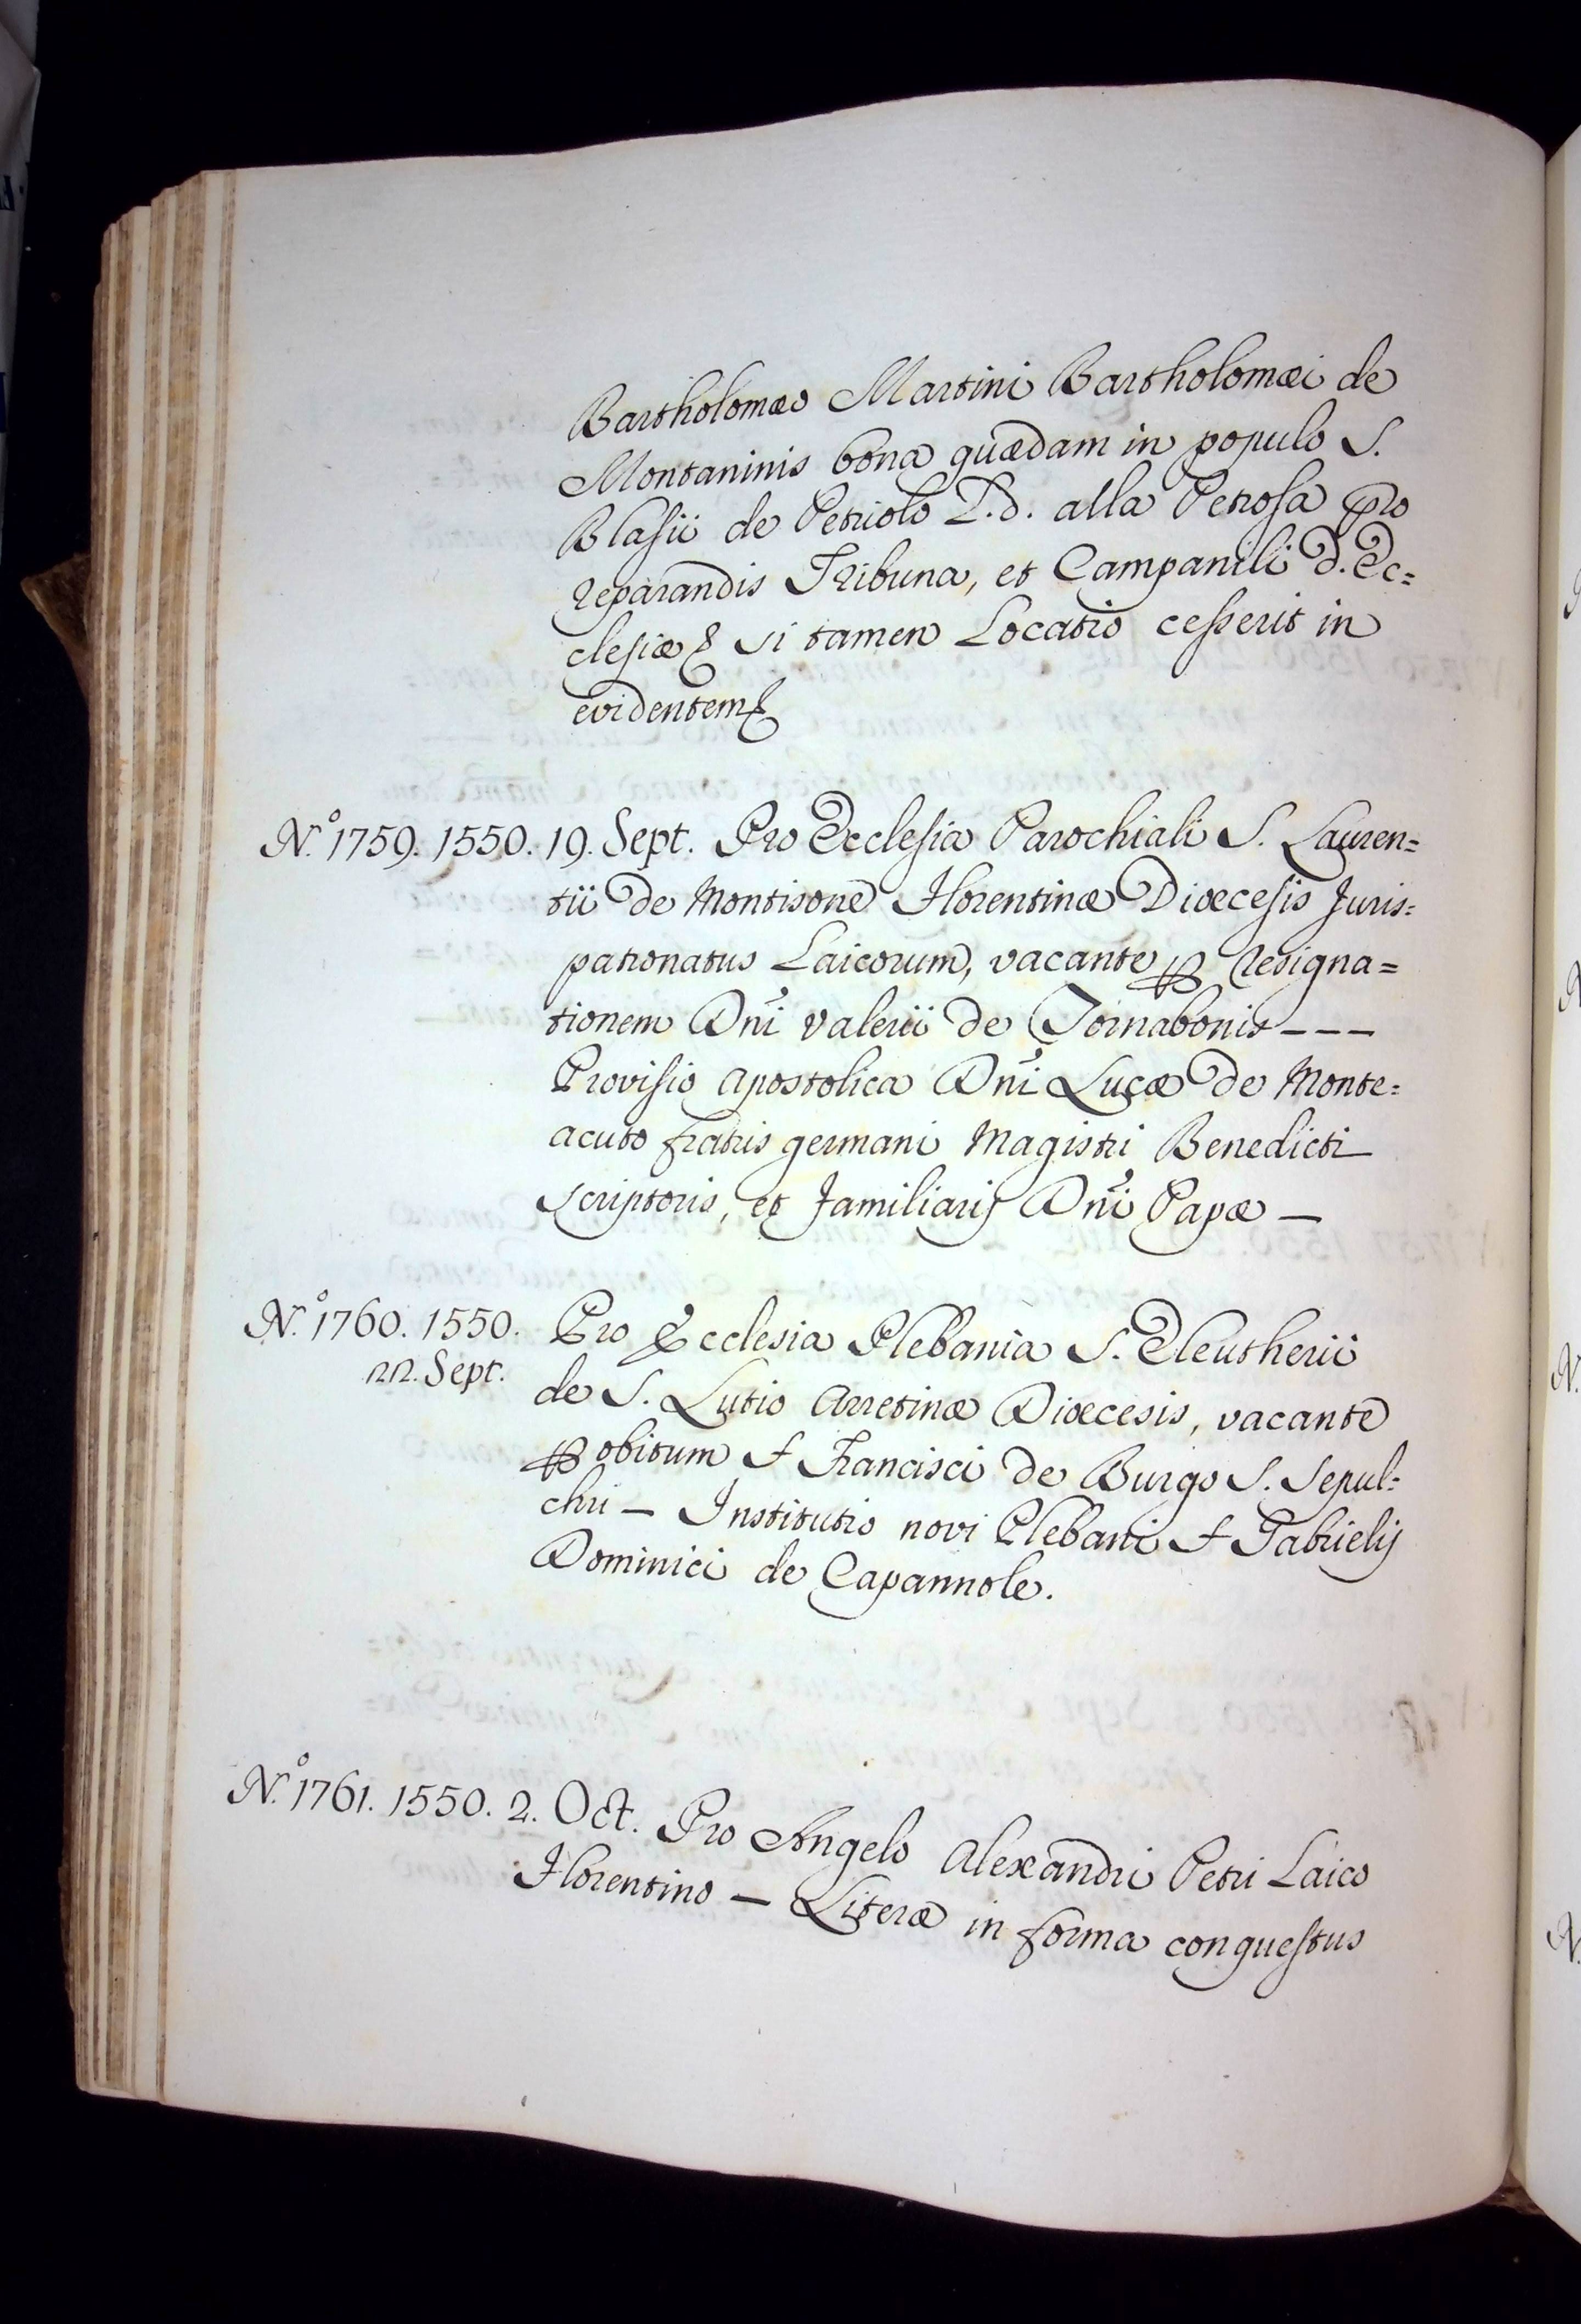 Bartholomæo Martini Bartholomæi de
Montaninis bona quædam in populo S.
Blasii de Petriolo L.d. alla Petrosa pro
reparandis Tribuna, et Campanili d. Ec=
clesiæ & si tamen Locatio cesserit in
evidentem &
N.º 1759. 1550. 19. Sept. Pro Ecclesia Parochiali S. Lauren=
tii de Montisone Florentinæ Diœcesis Juris=
patronatus Laicorum, vacante ꝑ resigna=
tionem Dñi Valerii de Tornabonis - - -
Provisio Apostolica Dñi Lucæ de Monte=
acuto fratris germani Magistri Benedicti
scriptoris, et familiaris Dñi Papæ —
N.º 1760. 1550. Pro Ecclesia Plebania S. Eleutherii
22. Sept. de S. Lutio Arretinæ Diœcesis, vacante
ꝑ obitum f Francisci de Burgo S. Sepul=
chri — Institutio novi Plebani f Gabrielis
Dominici de Capannole.
N.º 1761. 1550. 2. Oct. Pro Angelo Alexandri Petri Laico
Florentino — Literæ in forma conquestus